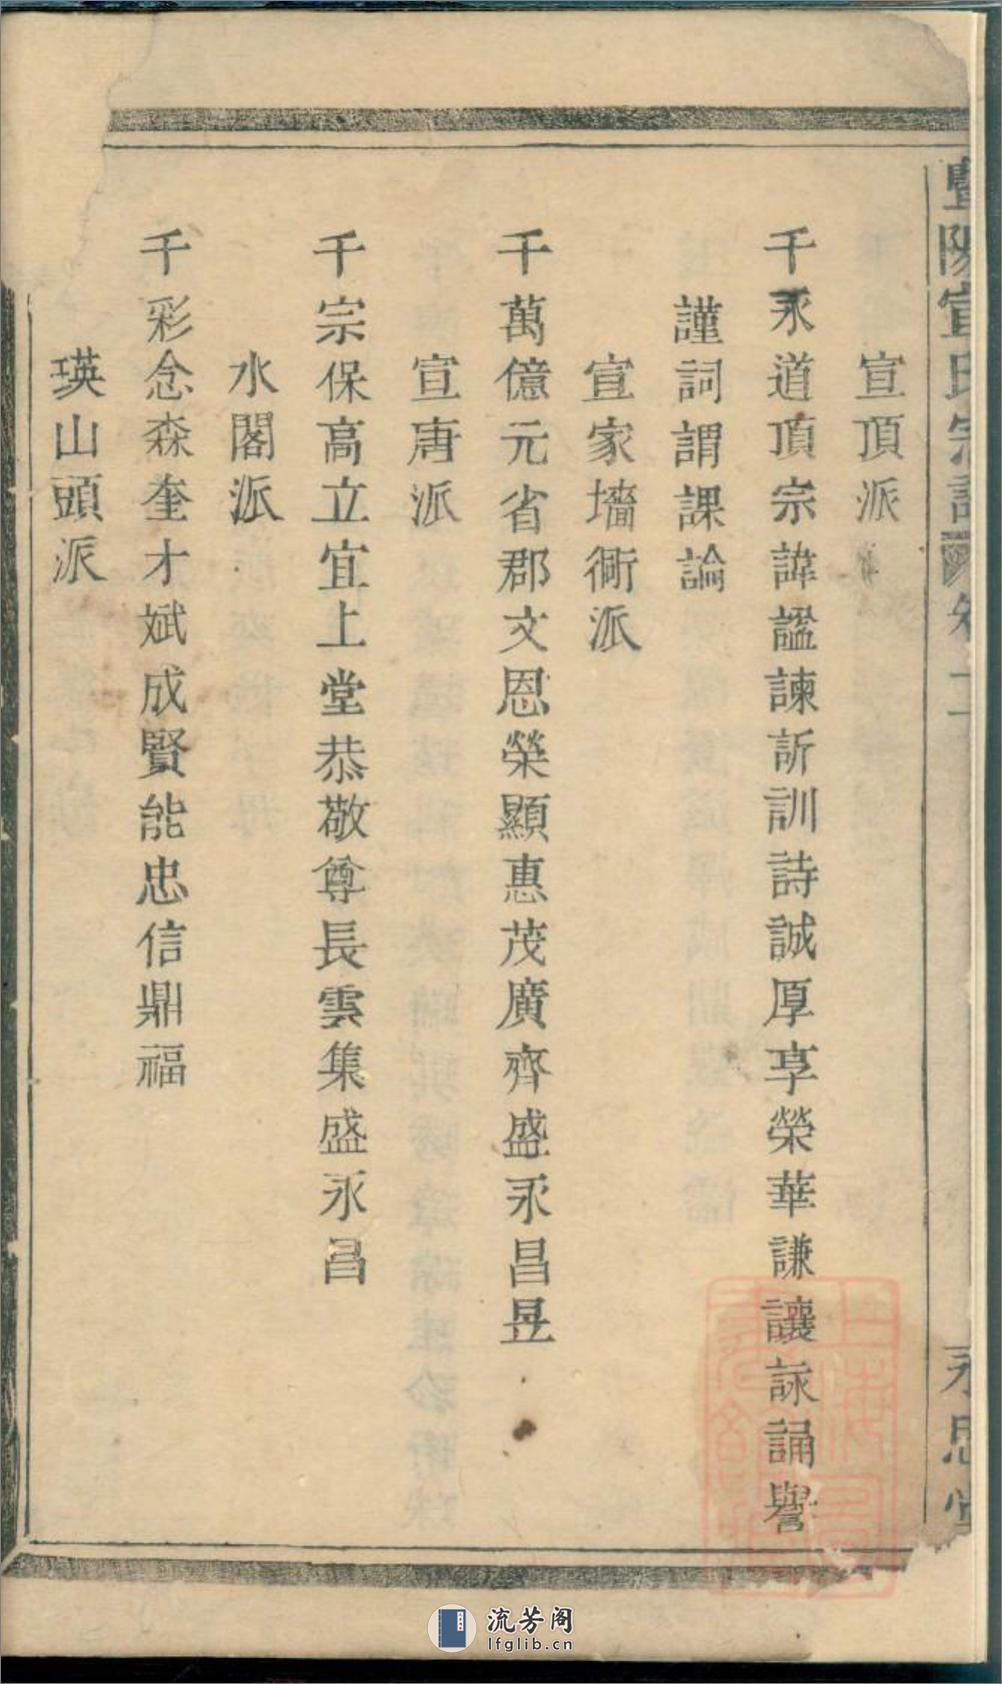 暨陽宣氏宗譜 卷之二
永思堂
宣頂派
千永道頂宗諱謐諫訢訓詩誠厚享榮華謙讓詠誦譽
謹詞謂課論
宣家墻衕派
千萬億元省郡文恩榮顯惠茂廣齊盛永昌昱
宣唐派
千宗保高立宜上堂恭敬尊長雲集盛永昌
水閣派
千彩念森奎才斌成賢能忠信鼎福
瑛山頭派
流芳阁
lfglib.cn